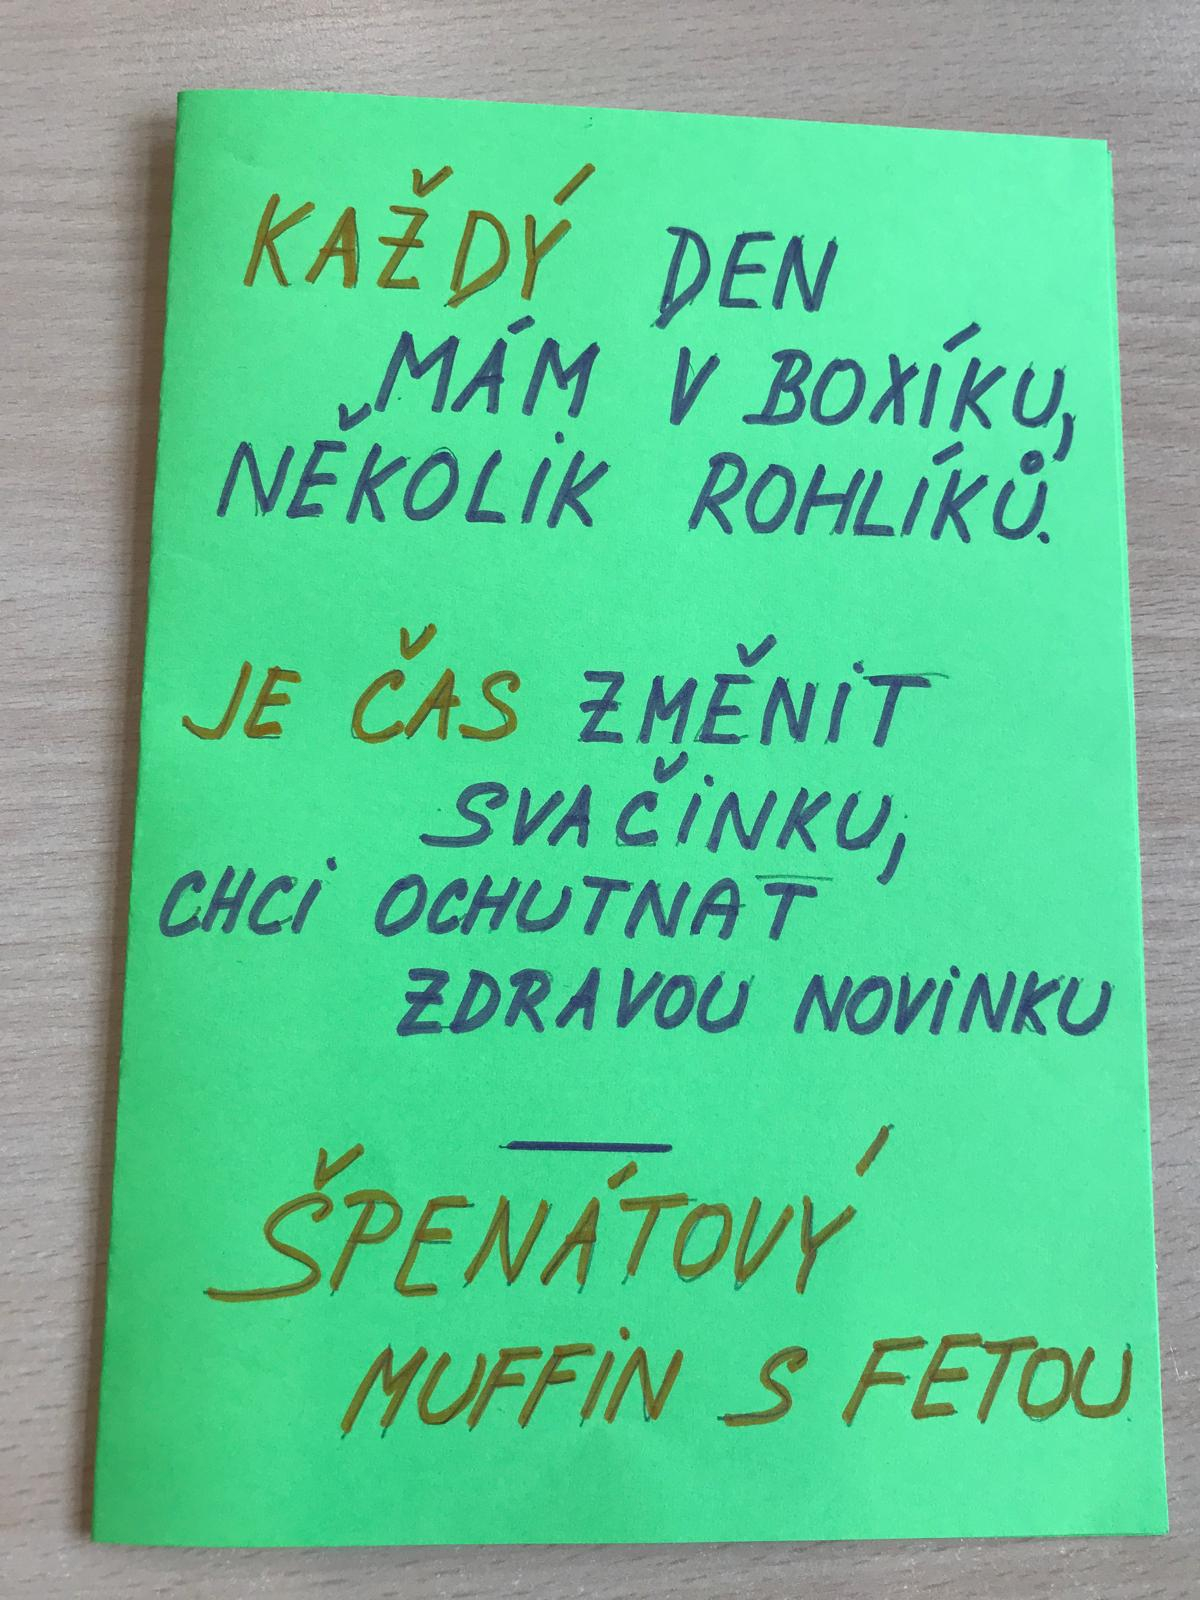 KAŽDÝ DEN
MÁM V BOXÍKU,
NĚKOLIK ROHLÍKŮ.
JE ČAS ZMĚNIT
SVAČINKU,
CHCI OCHUTNAT
ZDRAVOU NOVINKU
ŠPENÁTOVÝ
MUFFIN S FETOU